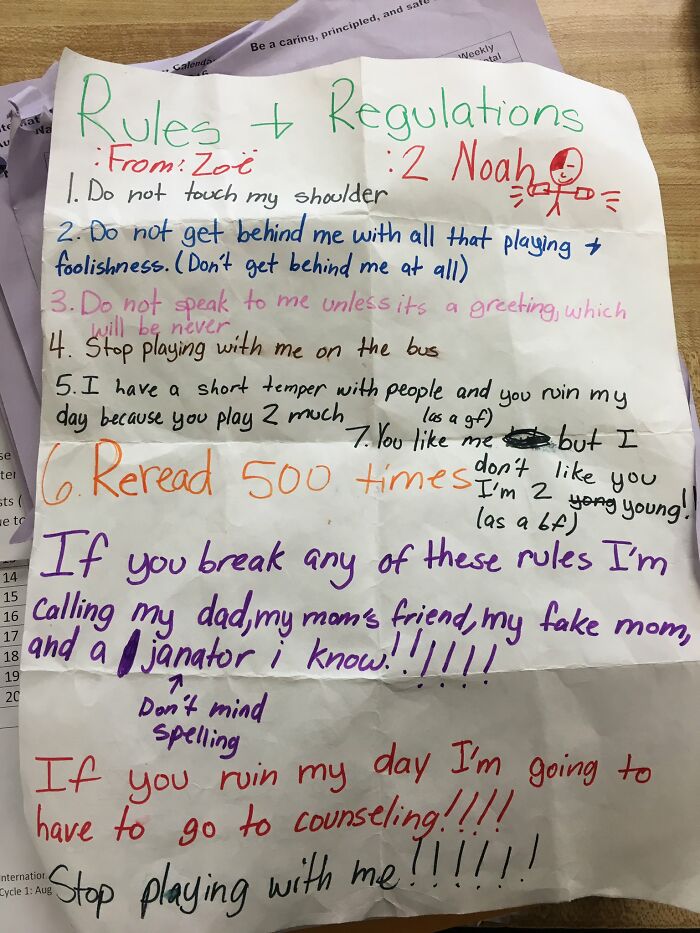 Be a caring, principled, and safe
Calenda
Weekly
Rules + Regulations
:From: Zoë
:2 Noah
1. Do not touch my shoulder
2. Do not get behind me with all that playing +
foolishness. (Don't get behind me at all)
3. Do not speak to me unless its a greeting, which
will be never
4. Stop playing with me on the bus
5. I have a short temper with people and you ruin my
day because you play 2 much
(as a gf)
7. You like me but I
don't like you
I'm 2 yong young!!
(as a bf)
6. Reread 500 times
If you break any of these rules I'm
calling my dad, my mom's friend, my fake mom,
and a janator i know!!!!!!!
Don't mind
spelling
If you ruin my day I'm going to
have to go to counseling!!!!
Stop playing with me!!!!!!!
14
15
16
17
18
19
20
Internation
Cycle 1: Aug